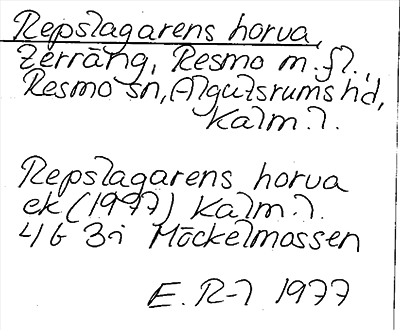 Repslagarens horva,
terräng, Resmo m.fl.,
Resmo sn, Algutsrums hd,
Kalm.l.
Repslagarens horva
ek (1977) Kalm.l.
4G 3i Möckelmossen
E. R-l 1977